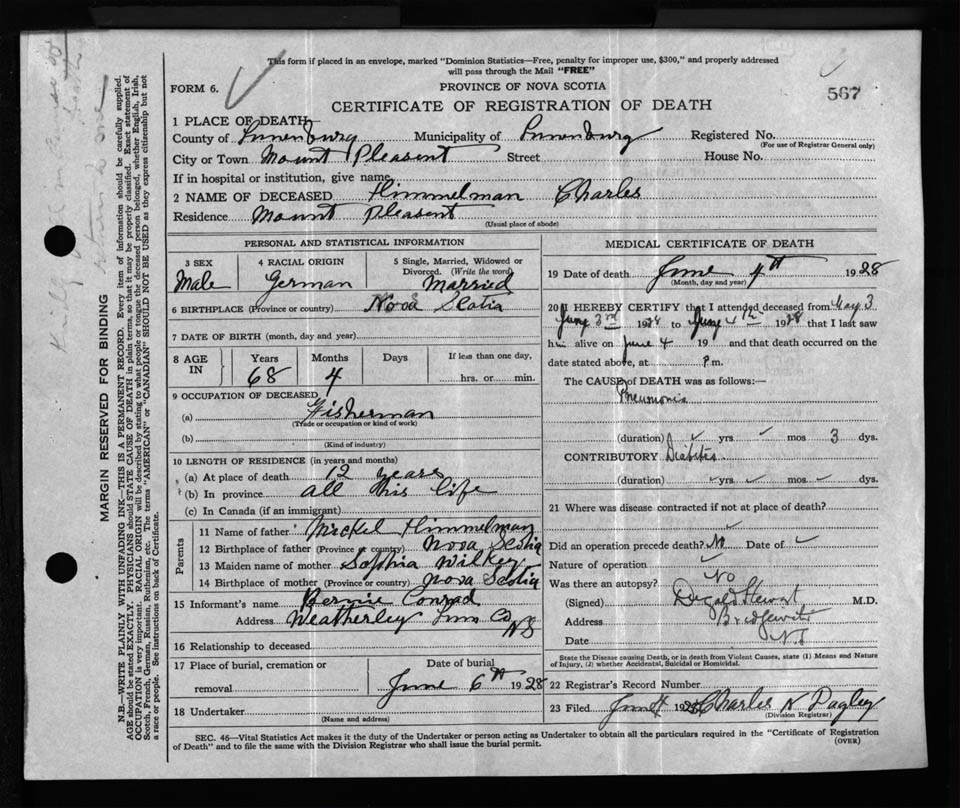 This form if placed in an envelope, marked "Dominion Statistics—Free, penalty for improper use, $300," and properly addressed
will pass through the Mail "FREE"
FORM 6.
PROVINCE OF NOVA SCOTIA
567
CERTIFICATE OF REGISTRATION OF DEATH
1 PLACE OF DEATH
County of Lunenburg Municipality of Lunenburg Registered No.
(For use of Registrar General only)
City or Town Mount Pleasent Street House No.
If in hospital or institution, give name
2 NAME OF DECEASED Himmelman Charles
Residence Mount Pleasent
(Usual place of abode)
PERSONAL AND STATISTICAL INFORMATION
3 SEX 4 RACIAL ORIGIN 5 Single, Married, Widowed or
Divorced. (Write the word)
Male German Married
6 BIRTHPLACE (Province or country) Nova Scotia
7 DATE OF BIRTH (month, day and year)
8 AGE IN Years Months Days If less than one day,
68 4 hrs. or min.
9 OCCUPATION OF DECEASED
(a) Fisherman
(Trade or occupation or kind of work)
(b)
(Kind of industry)
10 LENGTH OF RESIDENCE (in years and months)
(a) At place of death 12 years
(b) In province all his life
(c) In Canada (if an immigrant)
Parents
11 Name of father Mickel Himmelman
12 Birthplace of father (Province or country) Nova Scotia
13 Maiden name of mother Sophia
14 Birthplace of mother (Province or country) Nova Scotia
15 Informant's name Bernie Conrad
Address Weatherley Lun Co NS
16 Relationship to deceased
17 Place of burial, cremation or Date of burial
removal June 6th 1928
18 Undertaker
(Name and address)
MEDICAL CERTIFICATE OF DEATH
19 Date of death June 4th 1928
(Month, day and year)
20 I HEREBY CERTIFY that I attended deceased from May 3
June 3rd 1928 to June 4th 1928 that I last saw
him alive on June 4 19 and that death occurred on
date stated above, at P m.
The CAUSE of DEATH was as follows:—
Pneumonia
(duration) yrs mos 3 dys.
CONTRIBUTORY Diabetes
(duration) yrs mos dys.
21 Where was disease contracted if not at place of death?
Did an operation precede death? No Date of
Nature of operation
Was there an autopsy? No
(Signed) Dugald Stewart M.D.
Address Bridgewater
Date NS
State the Disease causing Death, or in death from Violent Causes, state (1) Means and Nature
of Injury, (2) whether Accidental, Suicidal or Homicidal.
22 Registrar's Record Number
23 Filed June 4 1928 Charles N Pagley
(Division Registrar)
SEC. 46—Vital Statistics Act makes it the duty of the Undertaker or person acting as Undertaker to obtain all the particulars required in the "Certificate of Registration
of Death" and to file the same with the Division Registrar who shall issue the burial permit.
(OVER)
MARGIN RESERVED FOR BINDING
N.B.—WRITE PLAINLY WITH UNFADING INK—THIS IS A PERMANENT RECORD. Every item of information should be carefully supplied.
AGE should be stated EXACTLY. PHYSICIANS should STATE CAUSE OF DEATH in plain terms, so that it may be properly classified. Exact statement of
OCCUPATION is very important. RACIAL ORIGIN will be described by stating to what people or tongue the deceased person belonged, whether English, Irish,
Scotch, French, German, Russian, Ruthenian, etc. The terms "AMERICAN" or "CANADIAN" SHOULD NOT BE USED as they express citizenship but not
a race or people. See instructions on back of Certificate.